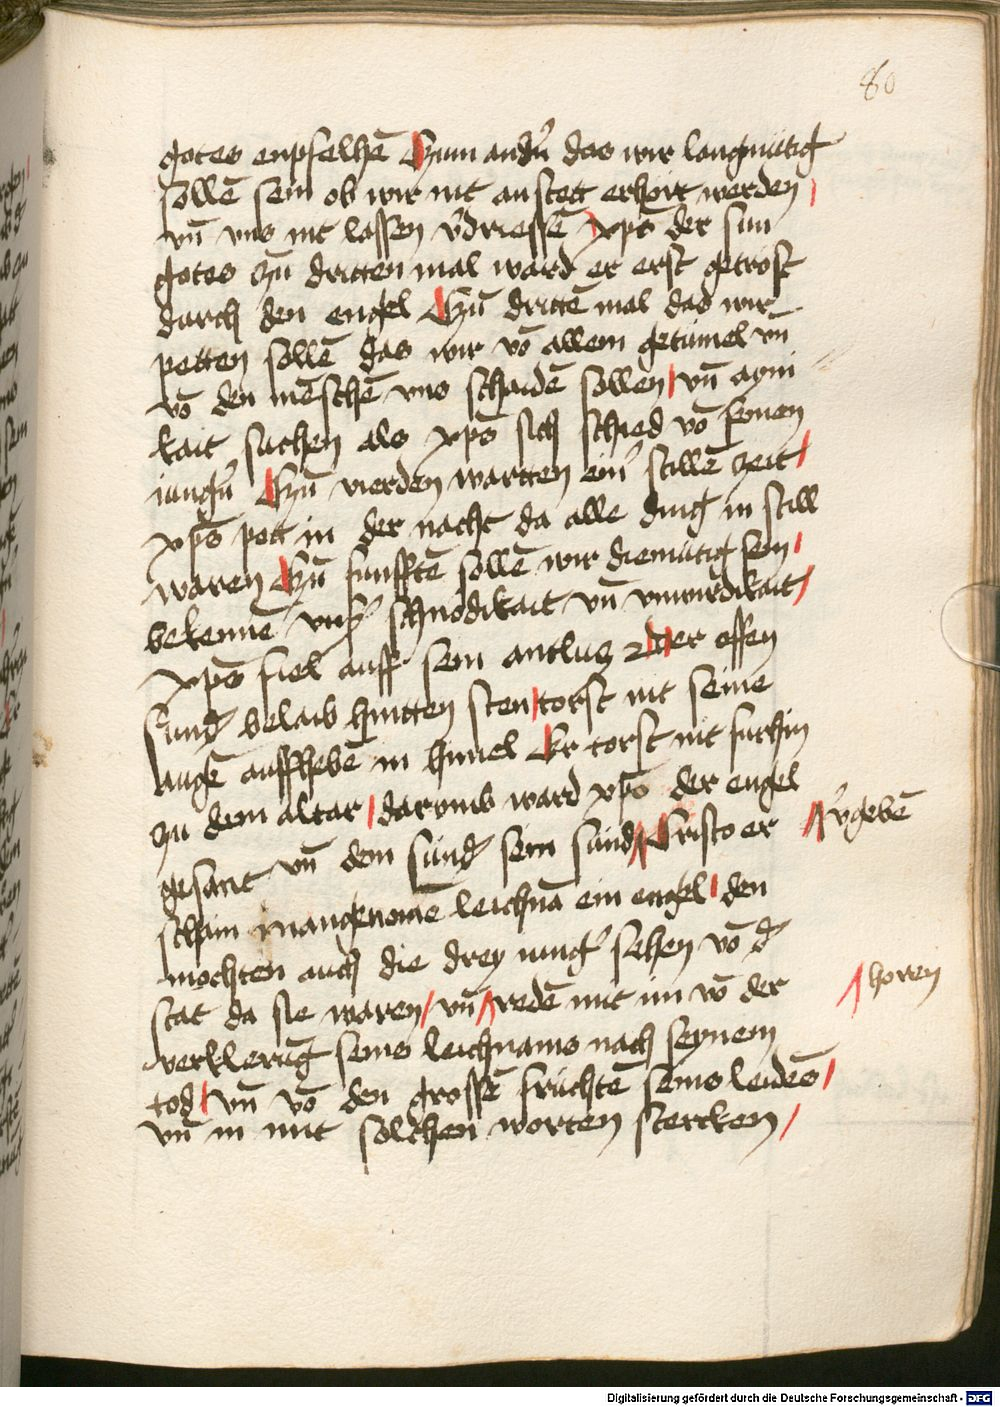 80
gotes enpfelhē Zum andn̄ das wir langmütig
sollē sein ob wir nit an stett erhört werden
vn̄ vns nit lassen v̄driessē xp̄s der sun
gotes zu dritten mal ward er erst getröst
durch den engel Zū dritten mal das wir
petten sollē das wir vō allem getümel vn̄
vō den mēschē vns schaidē sollen vn̄ ayni
kait suchen als xp̄s sich schied vō seinen
iungn̄ Zū vierden wartten ein̄ stillē zeit
xp̄s pett in der nacht da alle ding in still
waren Zū funfftē sollē wir diemütig sein
bekennē vnß schnödikait vn̄ vnwirdikait
xp̄s fiel auff sein antlutz der offen
sund̄ belaib hintten sten torst nit seine
augē auffhebē in himel Er torst nit furhin
zu dem altar darumb ward xp̄o der engel
gesant vn̄ dem sünd̄ sein sünd Cristo er
v̄gebē
schain in angenomē leichnā ein engel den
mochten auch die drey iungr̄ sehen vō d̄
stat da sie waren vn̄ reden mit im vō der
horren
verklerūg seins leichnams nach seynem
tod vn̄ vō den grossē früchtē seins leidēs
vn̄ in mit solchen worten stercken
Digitalisierung gefördert durch die Deutsche Forschungsgemeinschaft - DFG